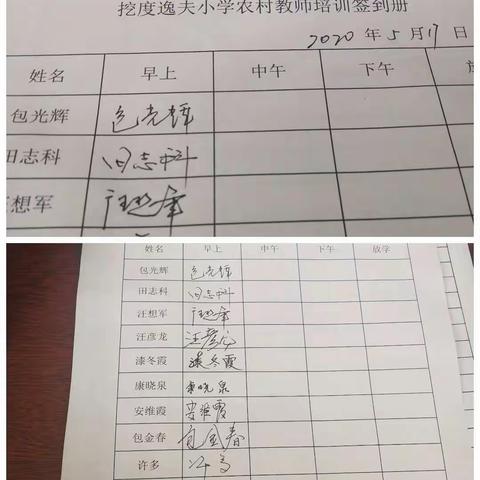 挖度逸夫小学农村教师培训签到册
2020 年 5 月 17 日
姓名 早上 中午 下午
包光辉 包光辉
田志科 田志科
汪想军 汪想军
姓名 早上 中午 下午 放学
包光辉 包光辉
田志科 田志科
汪想军 汪想军
汪彦龙 汪彦龙
漆冬霞 漆冬霞
康晓泉 康晓泉
安维霞 安维霞
包金春 包金春
许多 许多